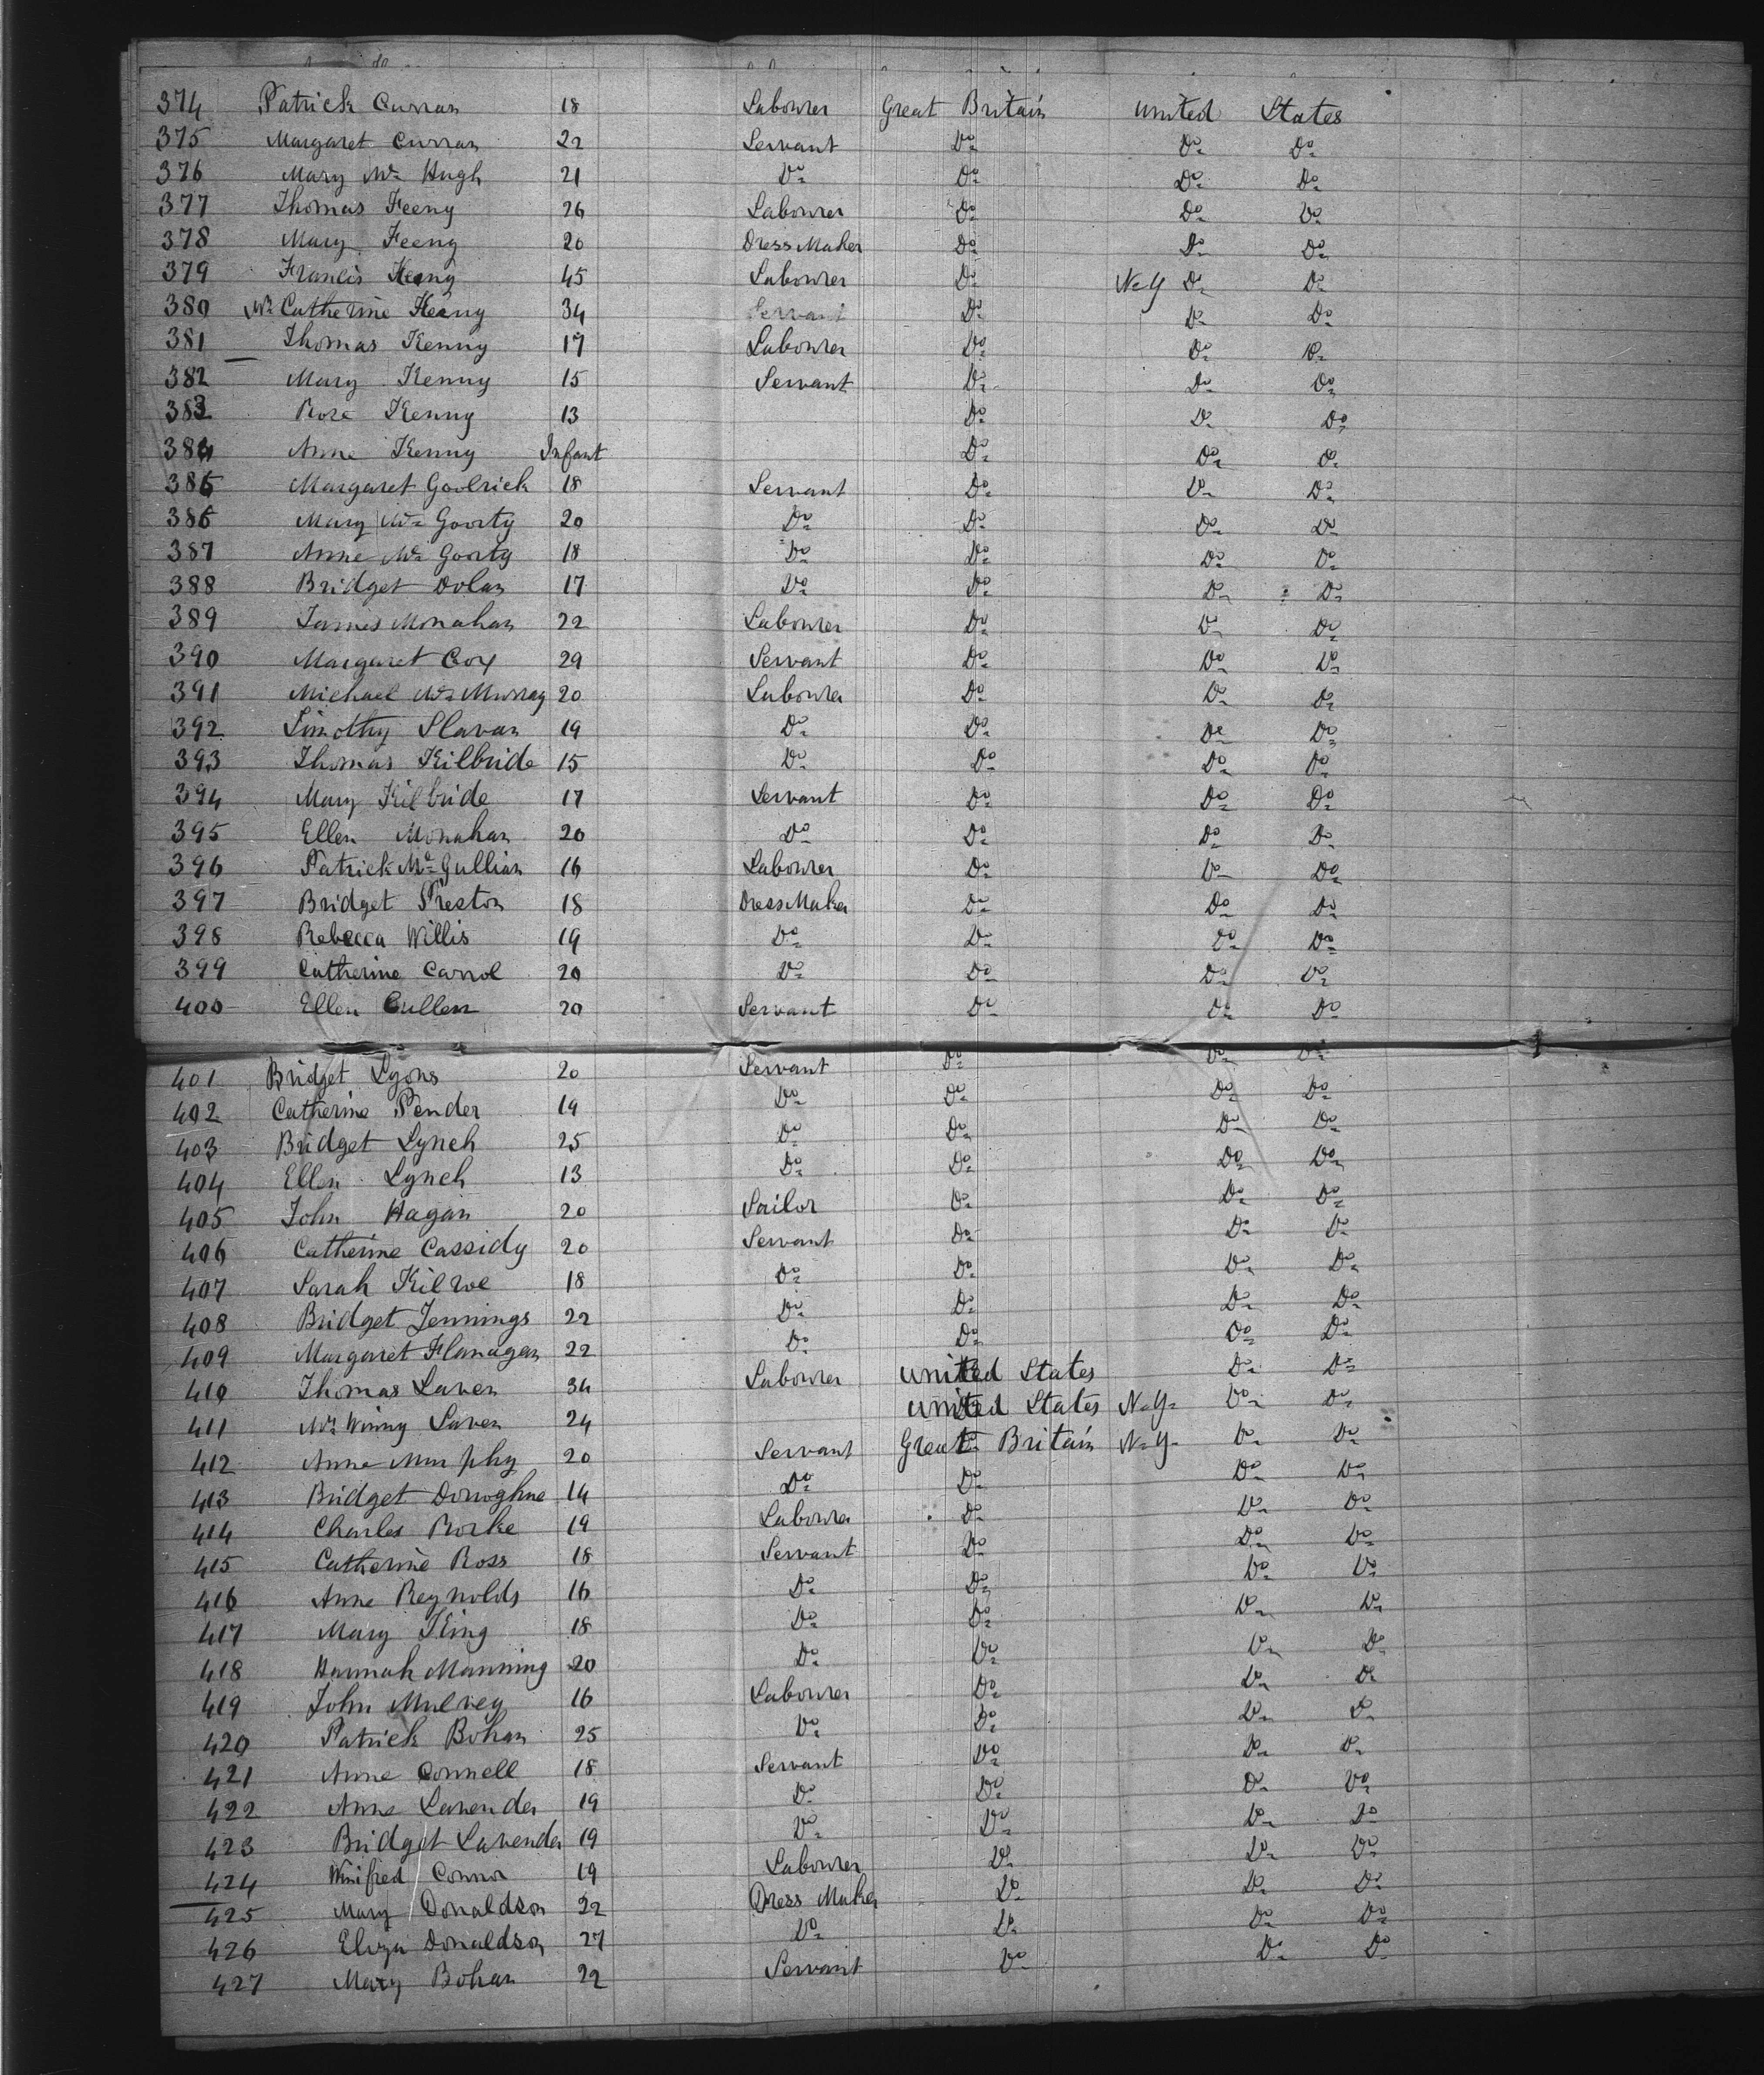 374 Patrick Curran 18 Labourer Great Britain United States
375 Margaret Curran 22 Servant Do Do Do
376 Mary Mc Hugh 21 Do Do Do Do
377 Thomas Feeny 26 Labourer Do Do Do
378 Mary Feeny 20 Dress Maker Do Do Do
379 Francis 45 Labourer Do N-Y Do Do
380 Catherine 34 Servant Do Do Do
381 Thomas Kenny 17 Labourer Do Do Do
382 Mary Kenny 15 Servant Do Do Do
383 Rose Kenny 13 Do Do Do
384 Anne Kenny Infant Do Do Do
385 Margaret Goolrick 18 Servant Do Do Do
386 Mary Mc Goorty 20 Do Do Do Do
387 Anne Mc Goorty 18 Do Do Do Do
388 Bridget Dolan 17 Do Do Do Do
389 James Monahan 22 Labourer Do Do Do
390 Margaret Cox 29 Servant Do Do Do
391 Michael Mc Murray 20 Labourer Do Do Do
392 Timothy Slavan 19 Do Do Do Do
393 Thomas Kilbride 15 Do Do Do Do
394 Mary Kilbride 17 Servant Do Do Do
395 Ellen Monahan 20 Do Do Do Do
396 Patrick Mc Gullian 16 Labourer Do Do Do
397 Bridget Preston 18 Dress Maker Do Do Do
398 Rebecca Willis 19 Do Do Do Do
399 Catherine Carrol 20 Do Do Do Do
400 Ellen Cullen 20 Servant Do Do Do
401 Bridget Lyons 20 Servant Do Do Do
402 Catherine Pender 19 Do Do Do Do
403 Bridget Lynch 25 Do Do Do Do
404 Ellen Lynch 13 Do Do Do Do
405 John Hagan 20 Sailor Do Do Do
406 Catherine Cassidy 20 Servant Do Do Do
407 Sarah Kilroe 18 Do Do Do Do
408 Bridget Jennings 22 Do Do Do Do
409 Margaret Flanagan 22 Do Do Do Do
410 Thomas Laven 34 Labourer United States Do Do
411 Mrs Winny Laven 24 United States N-Y- Do Do
412 Anne Murphy 20 Servant Great Britain N-Y- Do Do
413 Bridget Donoghue 14 Do Do Do Do
414 Charles Rorke 19 Labourer Do Do Do
415 Catherine Ross 18 Servant Do Do Do
416 Anne Reynolds 16 Do Do Do Do
417 Mary King 18 Do Do Do Do
418 Hannah Manning 20 Do Do Do Do
419 John Mulvey 16 Labourer Do Do Do
420 Patrick Bohan 25 Do Do Do Do
421 Anne Connell 18 Servant Do Do Do
422 Anne Lavender 19 Do Do Do Do
423 Bridget Lavender 19 Do Do Do Do
424 Winifred Connor 19 Labourer Do Do Do
425 Mary Donaldson 22 Dress Maker Do Do Do
426 Eliza Donaldson 27 Do Do Do Do
427 Mary Bohan 22 Servant Do